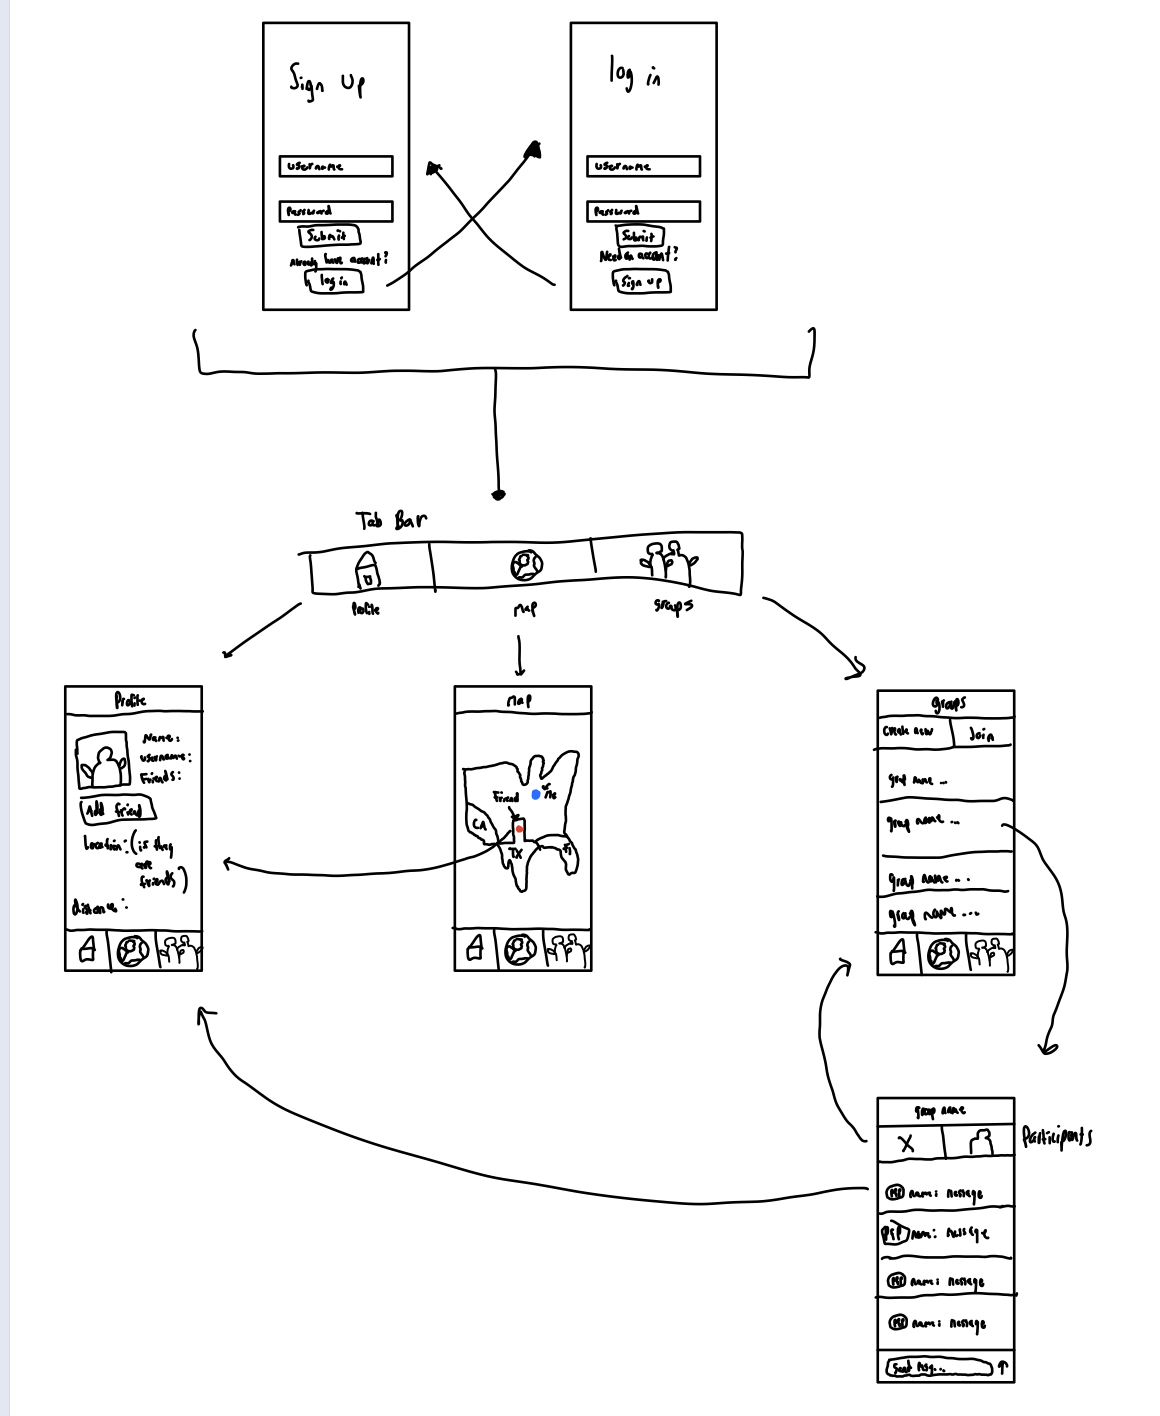 Sign Up
log in
username
Password
Submit
Already have account?
log in
username
Password
Submit
Need an account?
Sign up
Tab Bar
Profile
map
groups
Profile
Name:
username:
Friends:
Add friend
Location: (is they
are
friends)
distance:
map
Friend
Me
CA
TX
groups
Create new
Join
group name ...
group name ...
group name ...
group name ...
group name
X
Participants
name: message
PFP name: message
name: message
name: message
Send msg...